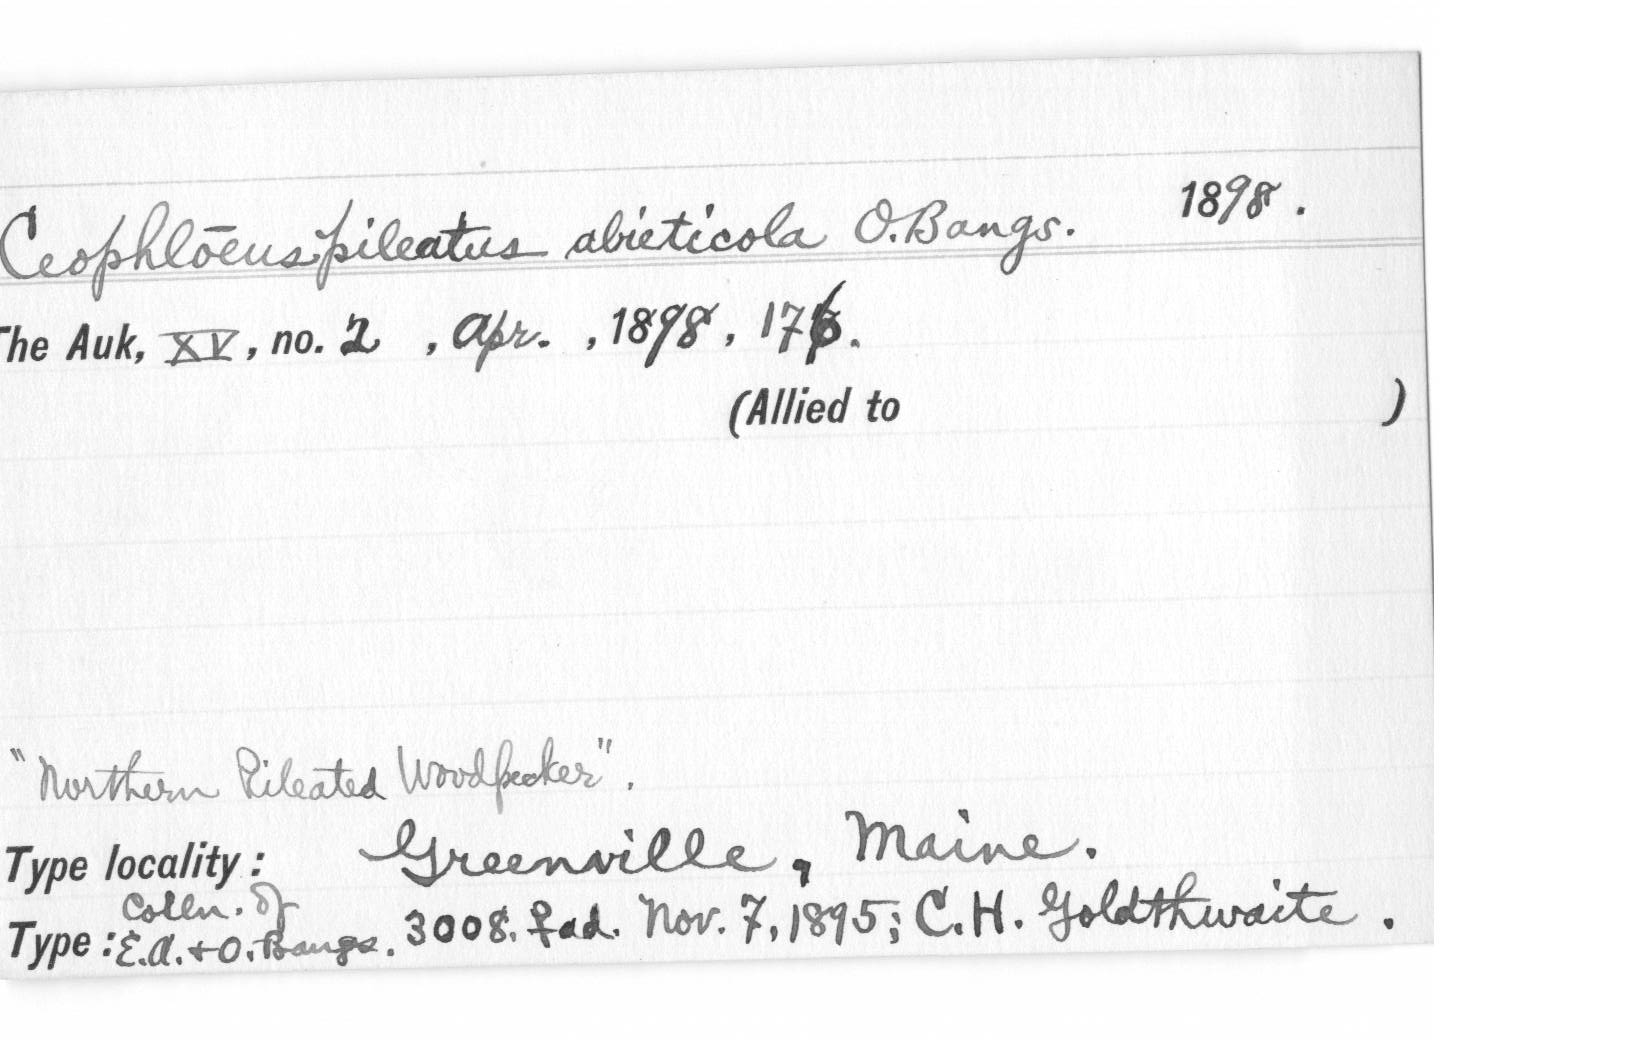 Ceophlōeus pileatus abieticola O. Bangs. 1898.
The Auk, XV, no. 2, Apr., 1898, 176.
(Allied to )
"Northern Pileated Woodpecker".
Type locality: Greenville, Maine.
Colln. of
Type: E.A. + O. Bangs. 3008. ♀ ad. Nov. 7, 1895; C.H. Goldthwaite.